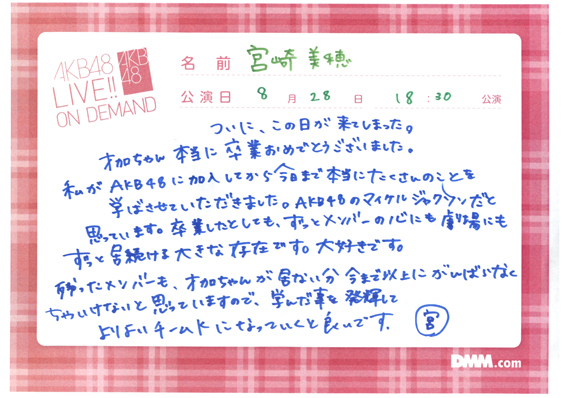 AKB48
LIVE!!
ON DEMAND
AKB
48
名前 宮崎美穂
公演日 8月28日 18:30公演
ついに、この日が来てしまった。
才加ちゃん本当に卒業おめでとうございました。
私がAKB48に加入してから今日まで本当にたくさんのことを
学ばさせていただきました。AKB48のマイケルジャクソンだと
思っています。卒業したとしても、ずっとメンバーの心にも劇場にも
ずっと居続ける大きな存在です。大好きです。
残ったメンバーも、才加ちゃんが居ない分今まで以上にがんばらなく
ちゃいけないと思っていますので、学んだ事を発揮して
よりよいチームKになっていくと良いです。 宮
DMM.com